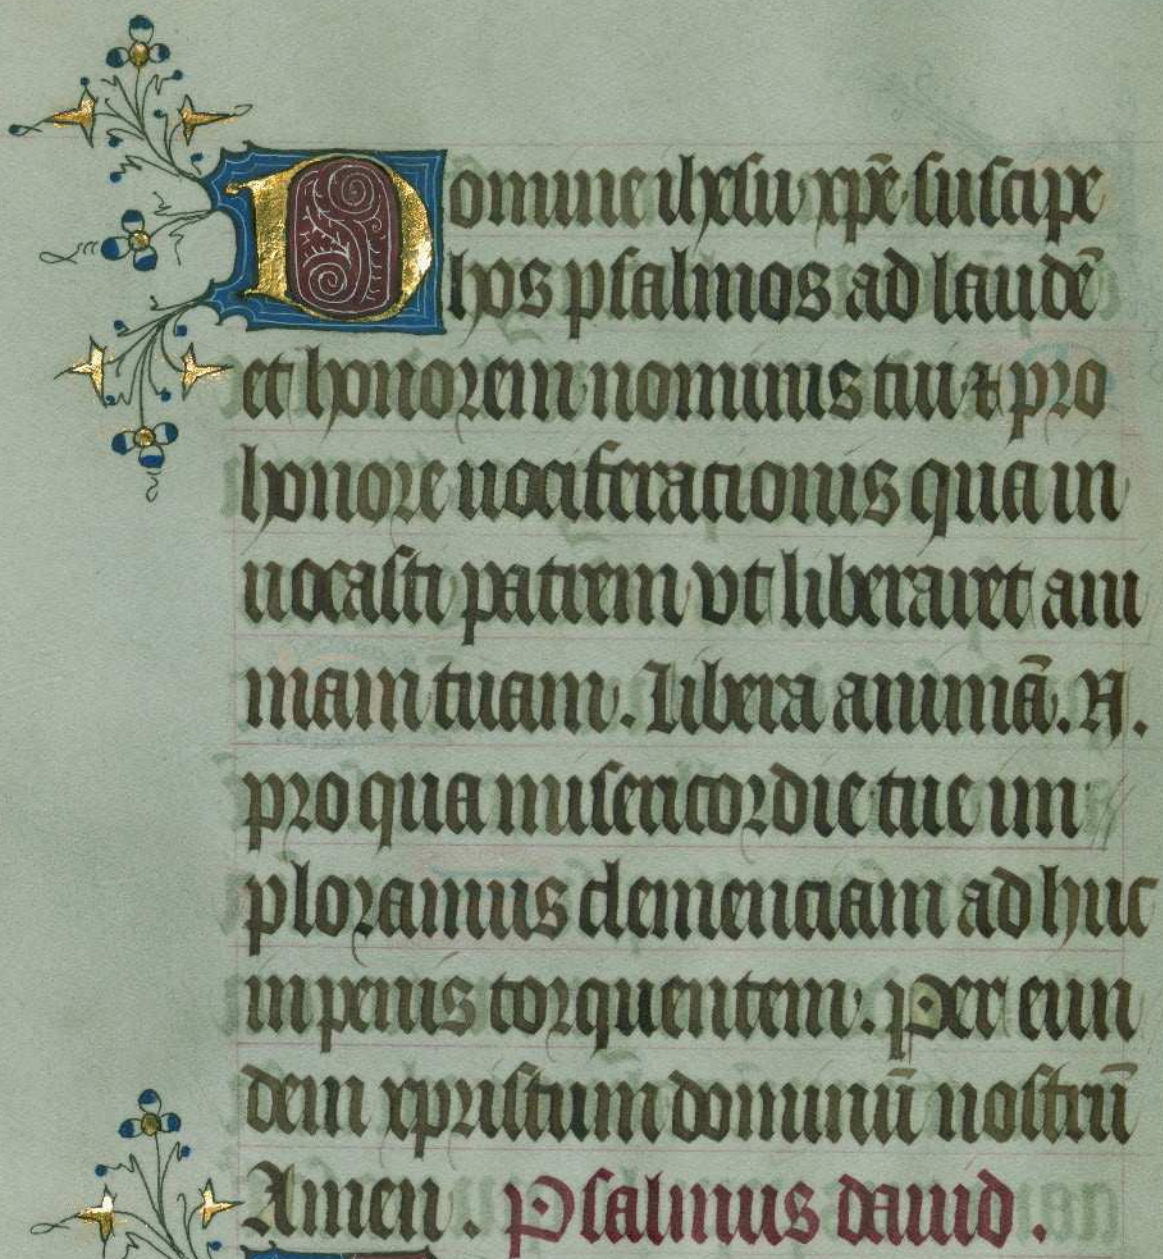 Domine ihesu xp̄e suscipe
hos psalmos ad laudē
et honorem nominis tui ⁊ pro
honore uociferationis qua in
uocasti patrem vt liberaret ani
mam tuam. Libera animā. N.
pro qua misericordie tue im
ploramus clementiam ad huc
in penis torquentem. Per eun
dem xpristum dominū nostrū
Amen. Psalmus dauid.